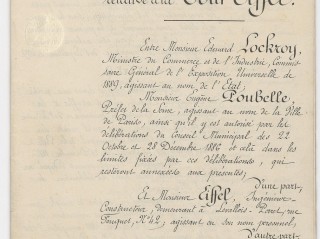 relative à la Tour Eiffel.
Entre Monsieur Edouard Lockroy,
Ministre du Commerce et de l'Industrie, Commis-
saire Général de l'Exposition Universelle de
1889, agissant au nom de l'Etat;
Monsieur Eugène Poubelle,
Préfet de la Seine, agissant au nom de la Ville
de Paris, ainsi qu'il y est autorisé par les
délibérations du Conseil Municipal des 22
Octobre et 28 Décembre 1886 et cela dans les
limites fixées par ces délibérations, qui
resteront annexées aux présentes;
D'une part,
Et Monsieur Eiffel, Ingénieur-
Constructeur, demeurant à Levallois-Perret, rue
Fouquet, N° 42; agissant en son nom personnel,
D'autre part.